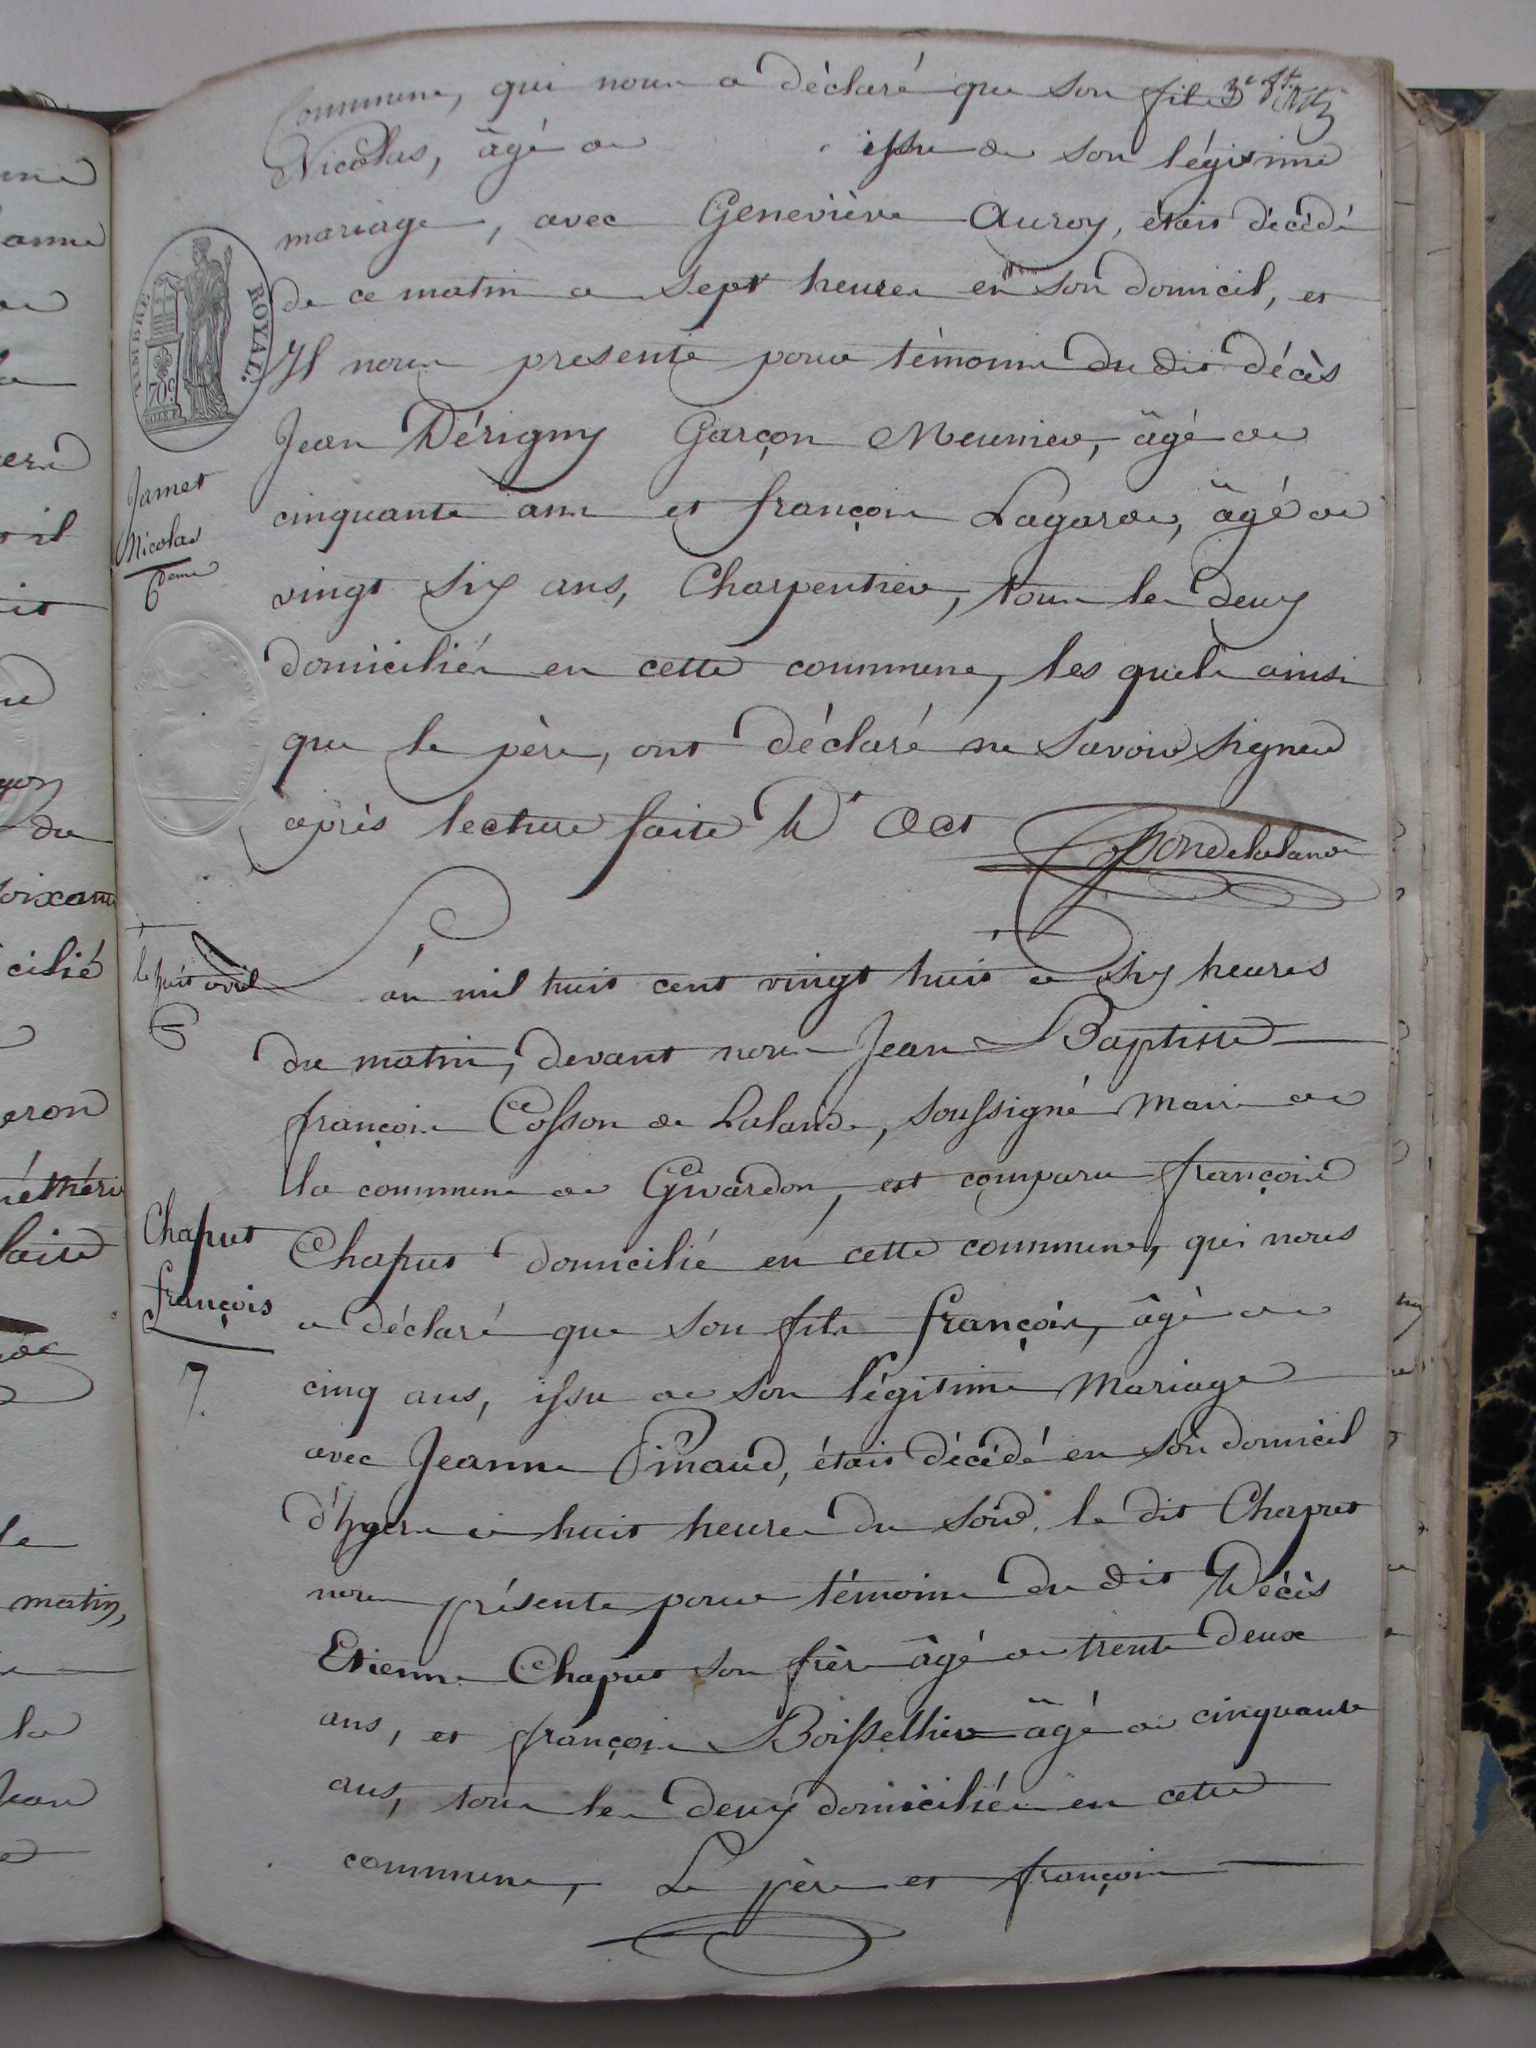 Commune, qui nous a déclaré que son fils 3e ft.
Nicolas, âgé de issu de son légitime
mariage, avec Geneviève Auroy, étais décédé
de ce matin a sept heures en son domicil, et
Il nous presente pour témoins du dit décès
Jean Dérigny Garçon Meunier, âgé de
cinquante ans et françois Lagarde, âgé de
vingt six ans, Charpentier, tous les deux
domiciliés en cette commune, les quels ainsi
que le père, ont déclaré ne savoir signer
après lecture faite Dt Act
Cosson de lalande
TIMBRE ROYAL.
70c
Jamet
Nicolas
6eme
le huit avril
an mil huit cent vingt huit a six heures
du matin, devant nous Jean Baptiste
françois Cosson de Lalande, soussigné Maire de
la commune de Givardon, est comparu françois
Chaput domicilié en cette commune, qui nous
a déclaré que son fils françois, âgé de
cinq ans, issu de son légitime Mariage
avec Jeanne Pinaud, étais décédé en son domicil
d'hyers a huit heures du soir. le dit Chaput
nous présente pour témoins du dit Décès
Etienne Chaput son frère âgé de trente deux
ans, et françois Boissellier âgé de cinquante
ans, tous les deux domiciliés en cette
commune, Le père et françois
Chaput
françois
7.